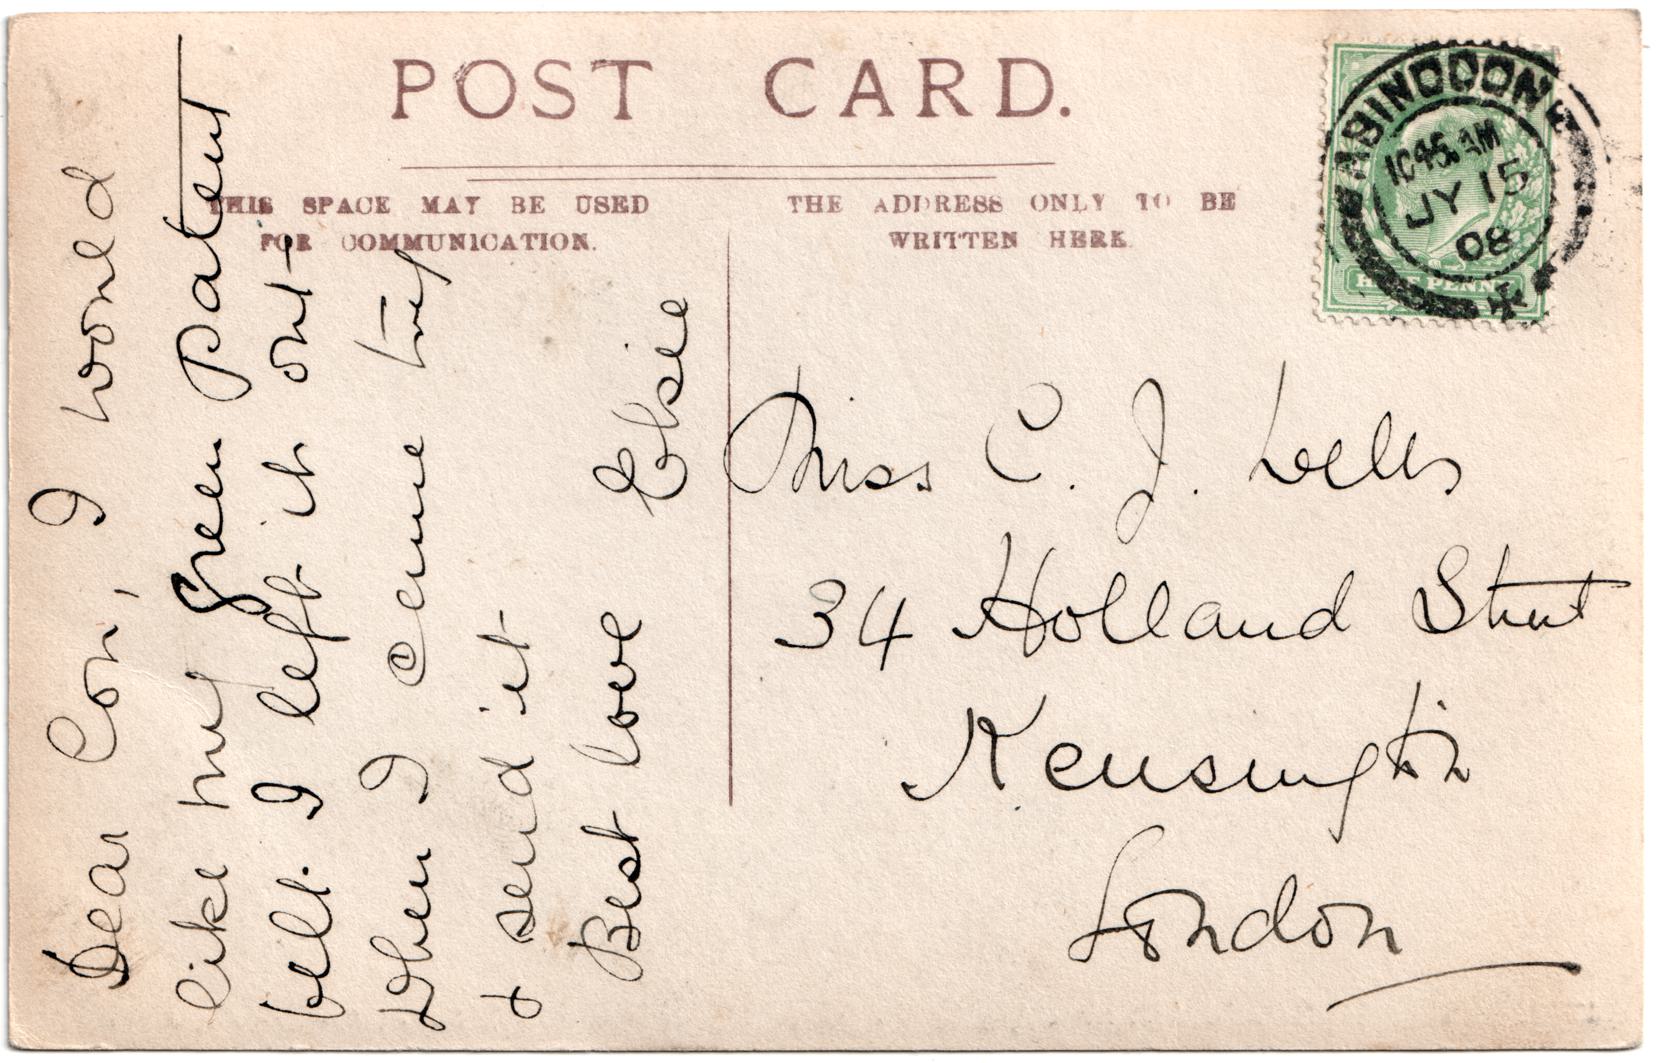 POST CARD.
THIS SPACE MAY BE USED
FOR COMMUNICATION.
THE ADDRESS ONLY TO BE
WRITTEN HERE.
ABINGDON
1045 AM
JY 15
08
HALF PENNY
Dear Con, I would
like my green patent
belt. I left it out
when I came try
& send it
Best love Elsie
Miss C. J. Wells
34 Holland Street
Kensington
London